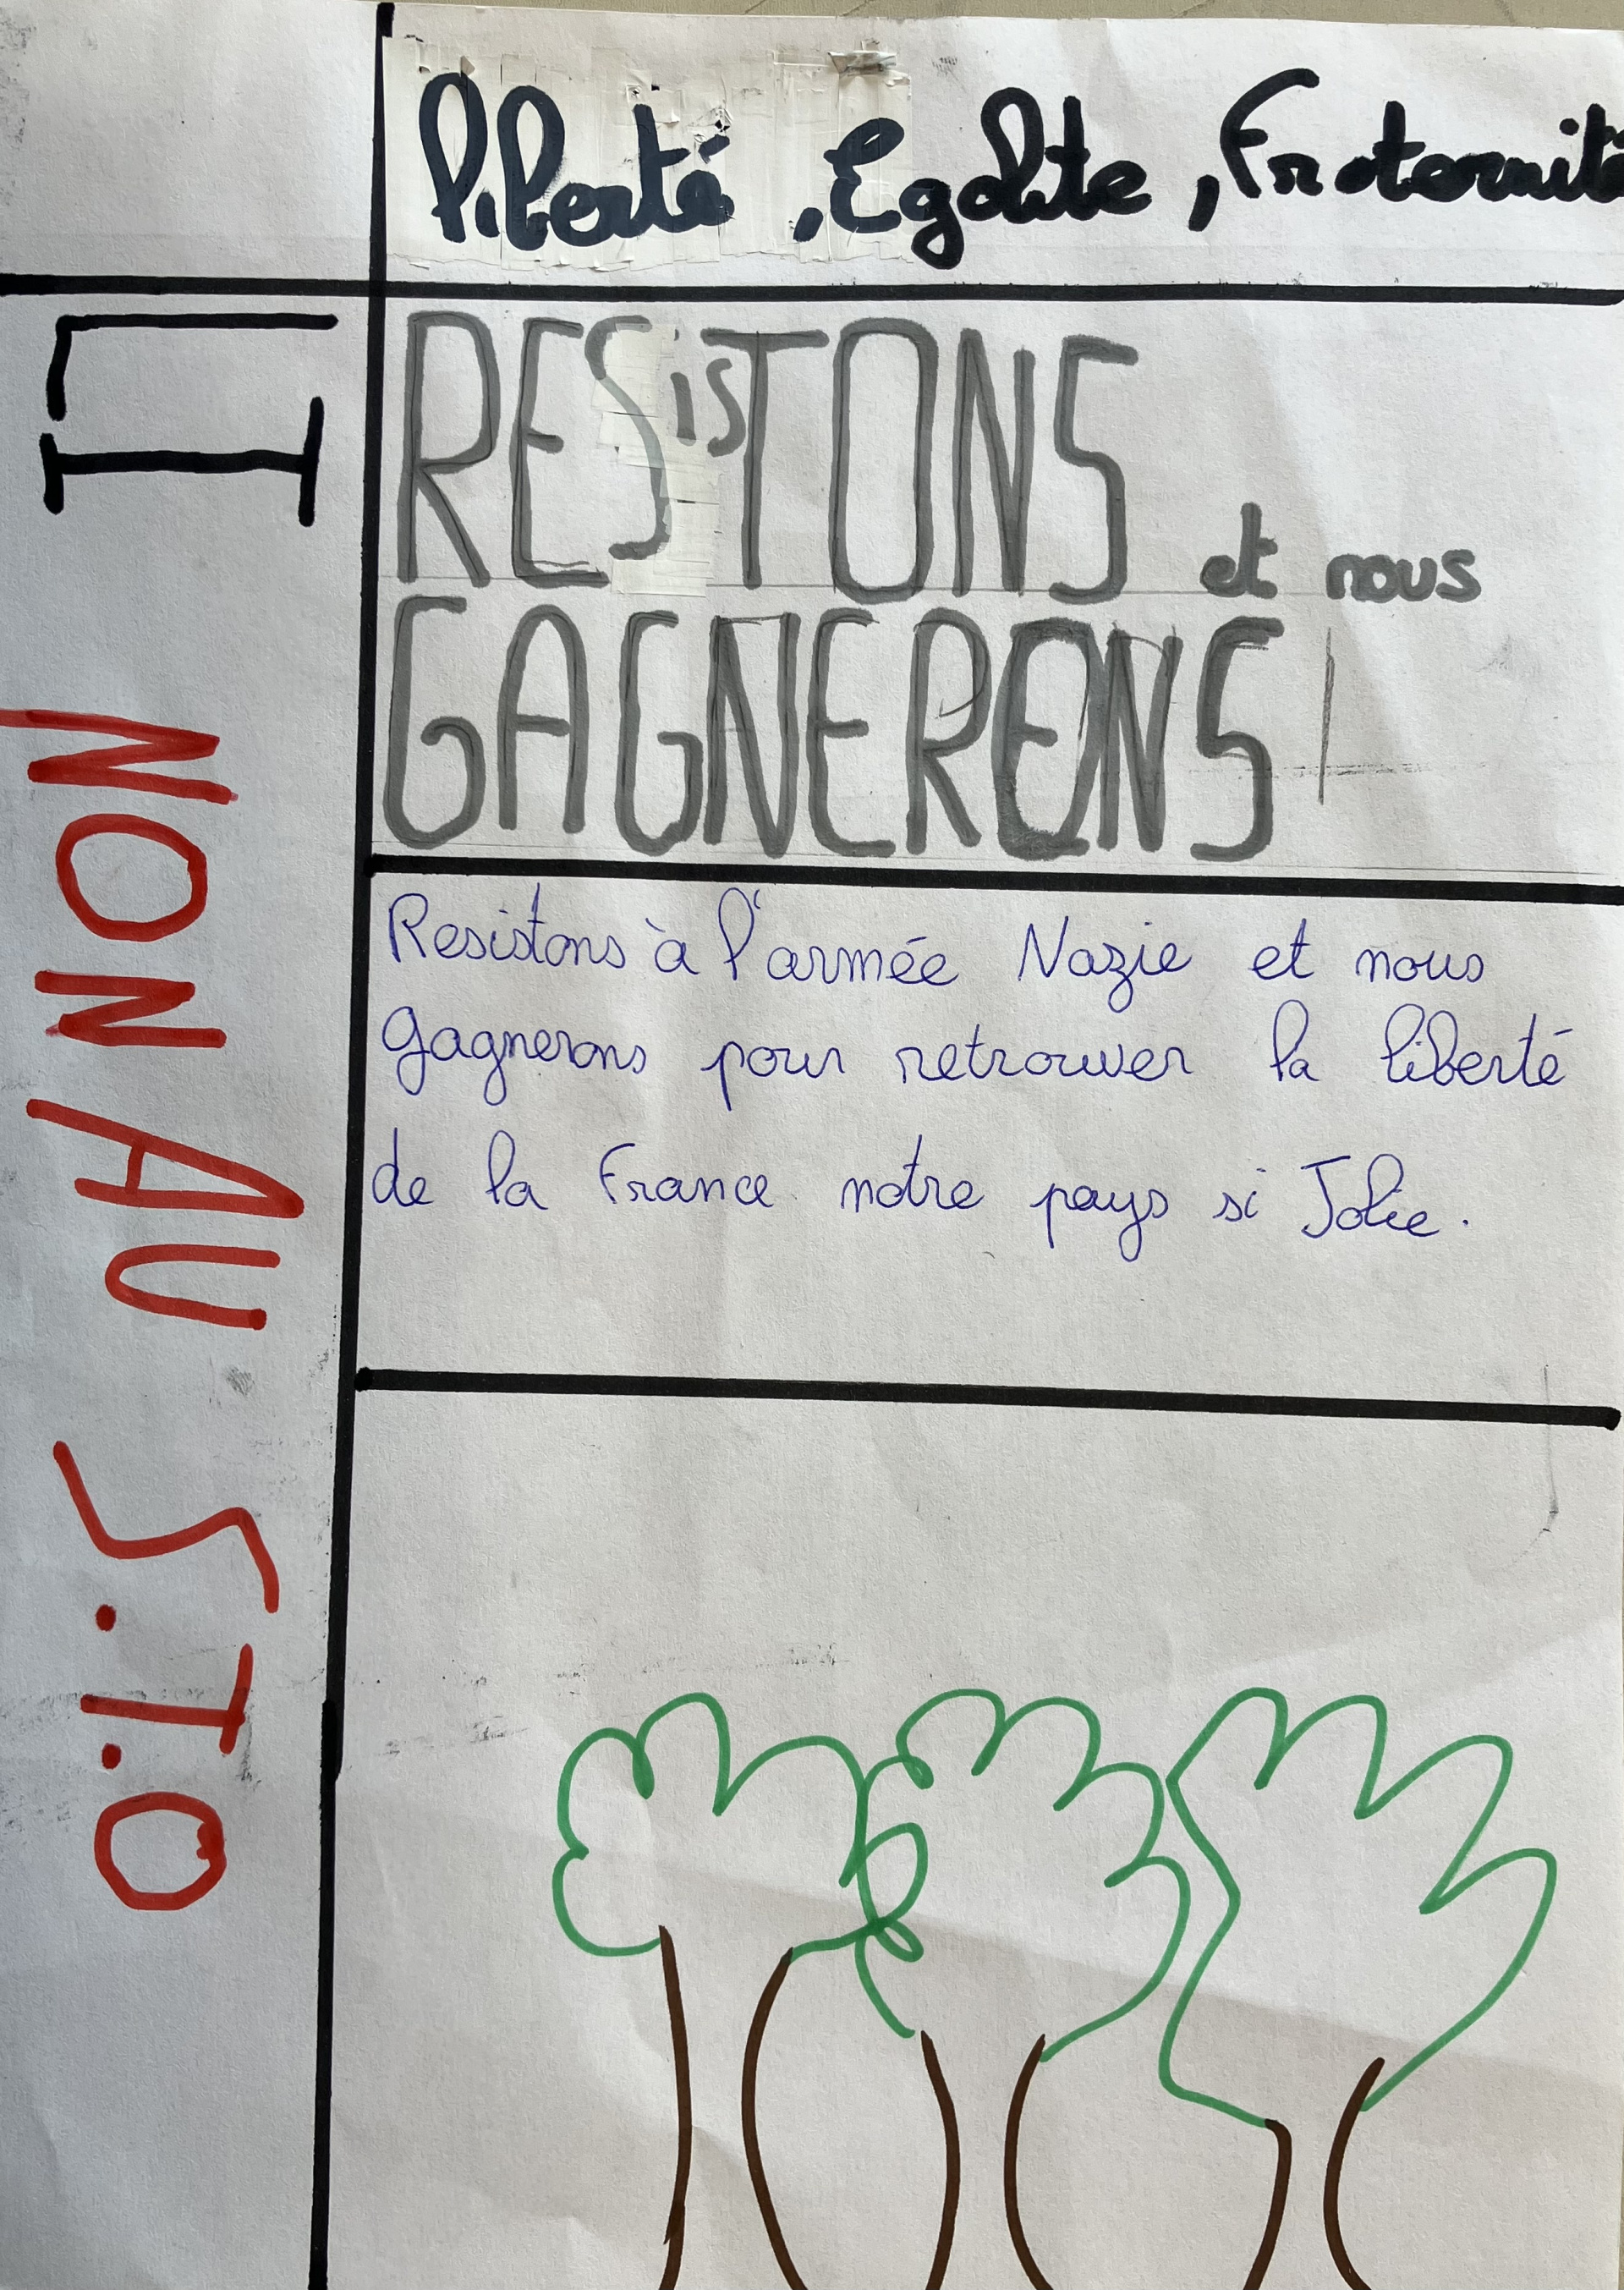 liberté, Egalite, Fraternité
RESisTONS et nous
GAGNERONS
Resistons à l'armée Nazie et nous
gagnerons pour retrouver la liberté
de la France notre pays si Jolie.
LI
NON AU S.T.O